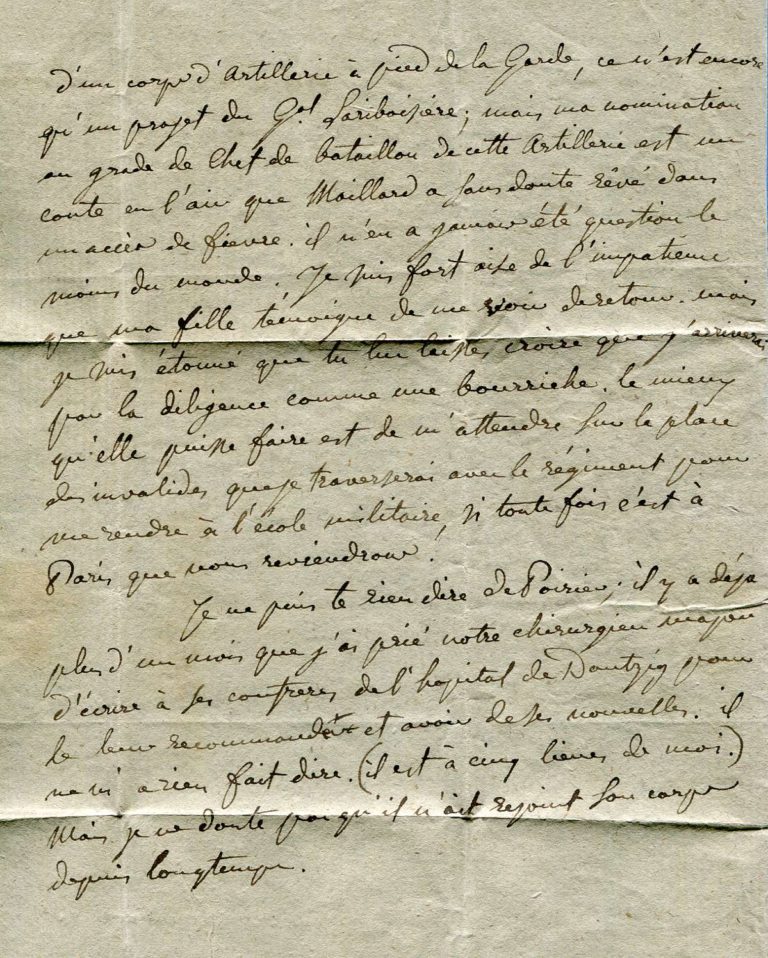 d'un corps d'Artillerie à pied de la Garde, ce n'est encore
qu'un projet du Gal Lariboisiére; mais ma nomination
au grade de Chef de bataillon de cette Artillerie est un
conte en l'air que Maillard a sans doute rêvé dans
un accès de fievre. il n'en a jamais été question le
moins du monde. Je suis fort aise de l'impatience
que ma fille témoigne de me voir de retour. mais
je suis étonné que tu lui laisses croire que j'arriverai
par la diligence comme une bourriche. le mieux
qu'elle puisse faire est de m'attendre sur la place
des invalides que je traverserai avec le régiment pour
me rendre à l'école militaire, si toute fois c'est à
Paris que nous reviendrons!
Je ne puis te rien dire de Poirier; il y a déja
plus d'un mois que j'ai prié notre chirurgien major
d'écrire à ses confreres de l'hopital de Dantzig pour
le leur recommander et avoir de ses nouvelles. il
ne m'a rien fait dire. (il est à cinq lieues de moi.)
Mais je ne doute pas qu'il n'ait rejoint son corps
depuis longtemps.